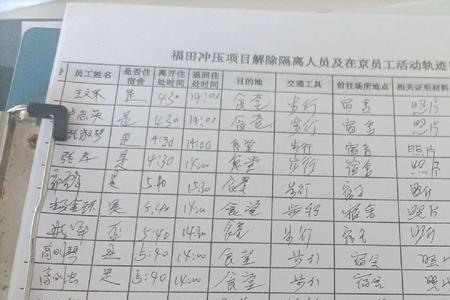 福田冲压项目解除隔离人员及在京员工活动轨迹
员工姓名 是否住宿舍 离开住处时间 返回住处时间 目的地 交通工具 前往场所地点 相关证明材料
是 4:30 14:00 食堂 步行 宿舍 照片
是 4:30 14:00 食堂 步行 宿舍 照片
是 4:30 14:00 食堂 步行 宿舍 照片
张 是 4:30 14:00 食堂 步行 宿舍 照片
是 5:40 食堂 步行 宿舍 照片
是 5:40 14:00 食堂 步行 宿舍 照片
否 5:40 14:30 食堂 步行 宿舍 照片
高 是 5:40 14:00 食堂 步行 宿舍 照
高 是 5:40 14:00 食堂 步行 宿舍 照